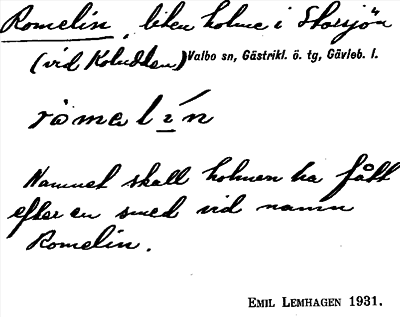 Romelin, liten holme i Storsjön
(vid Koludden) Valbo sn, Gästrikl. ö. tg, Gävleb. l.
römelín
Namnet skall holmen ha fått
efter en smed vid namn
Romelin.
EMIL LEMHAGEN 1931.